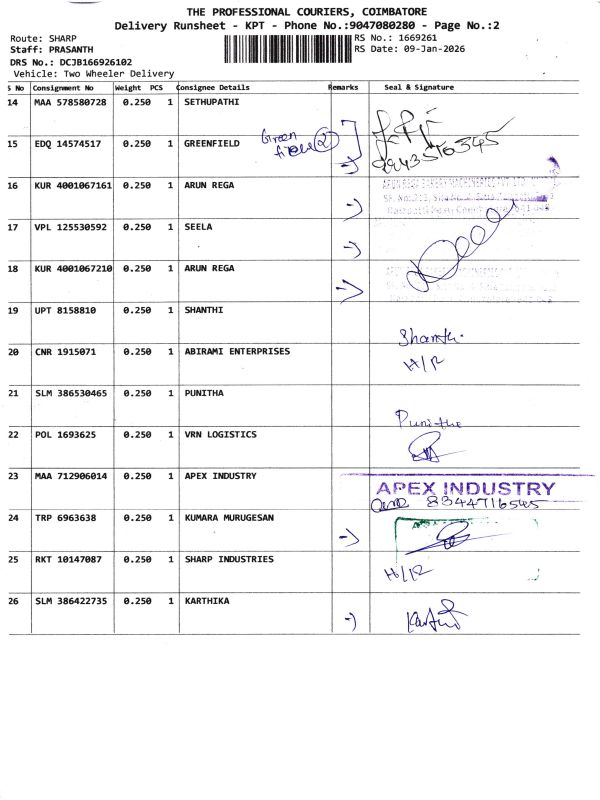 THE PROFESSIONAL COURIERS, COIMBATORE
Delivery Runsheet - KPT - Phone No.:9047080280 - Page No.:2
Route: SHARP
RS No.: 1669261
Staff: PRASANTH
RS Date: 09-Jan-2026
DRS No.: DCJB166926102
Vehicle: Two Wheeler Delivery
S No Consignment No Weight PCS Consignee Details Remarks Seal & Signature
14 MAA 578580728 0.250 1 SETHUPATHI
15 EDQ 14574517 0.250 1 GREENFIELD Green field (2) 9943516345
16 KUR 4001067161 0.250 1 ARUN REGA
17 VPL 125530592 0.250 1 SEELA
18 KUR 4001067210 0.250 1 ARUN REGA
19 UPT 8158810 0.250 1 SHANTHI Shanthi.
20 CNR 1915071 0.250 1 ABIRAMI ENTERPRISES H/R
21 SLM 386530465 0.250 1 PUNITHA Punitha
22 POL 1693625 0.250 1 VRN LOGISTICS
23 MAA 712906014 0.250 1 APEX INDUSTRY APEX INDUSTRY
8344716545
24 TRP 6963638 0.250 1 KUMARA MURUGESAN
25 RKT 10147087 0.250 1 SHARP INDUSTRIES H/R
26 SLM 386422735 0.250 1 KARTHIKA